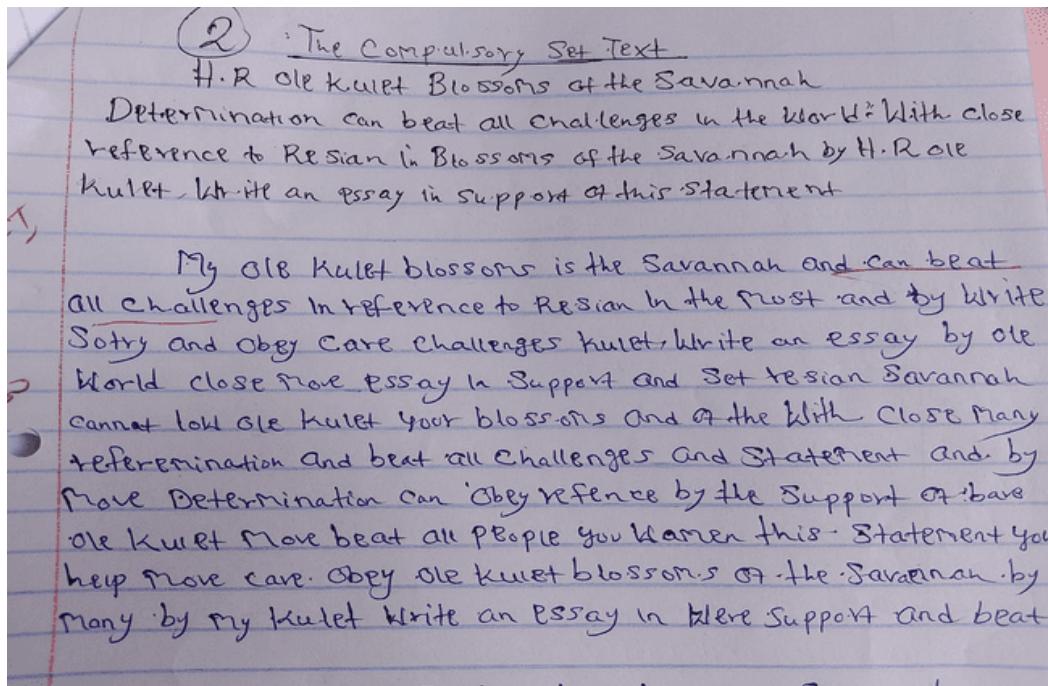 2 : The Compulsory Set Text
H.R Ole Kulet Blossoms of the Savannah
Determination can beat all challenges in the World: With close
reference to Resian in Blossoms of the Savannah by H.R Ole
Kulet, Write an essay in support of this statement
My ole Kulet blossoms is the Savannah and can beat
all challenges in reference to Resian in the must and by Write
Sotry and obey care challenges kulet, Write an essay by ole
World close move essay in Support and Set resian Savannah
cannat low ole kulet your blossoms and of the With Close many
referemination and beat all challenges and Statement and by
move Determination can obey refence by the Support of bare
ole Kulet move beat all people you Wamen this Statement you
help move care. Obey ole kulet blossoms of the Savaeinan by
many by my Kulet Write an essay in Were Support and beat